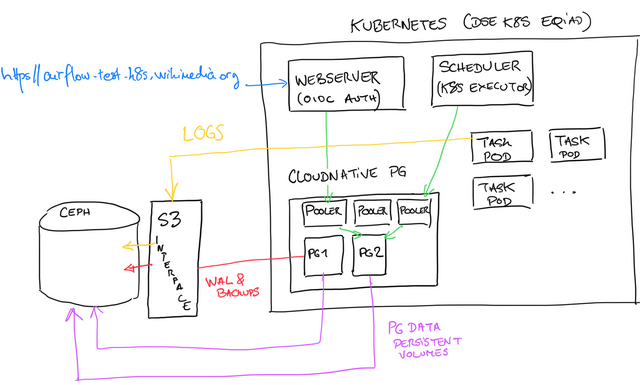 KUBERNETES (DSE K8S EQIAD)
https://airflow-test-k8s.wikimedia.org
WEBSERVER
(OIDC AUTH)
SCHEDULER
(K8S EXECUTOR)
LOGS
TASK
POD
TASK
POD
TASK
POD
...
CLOUDNATIVE PG
POOLER
POOLER
POOLER
PG1
PG2
CEPH
S3
INTERFACE
WAL &
BACKUPS
PG DATA
PERSISTENT
VOLUMES